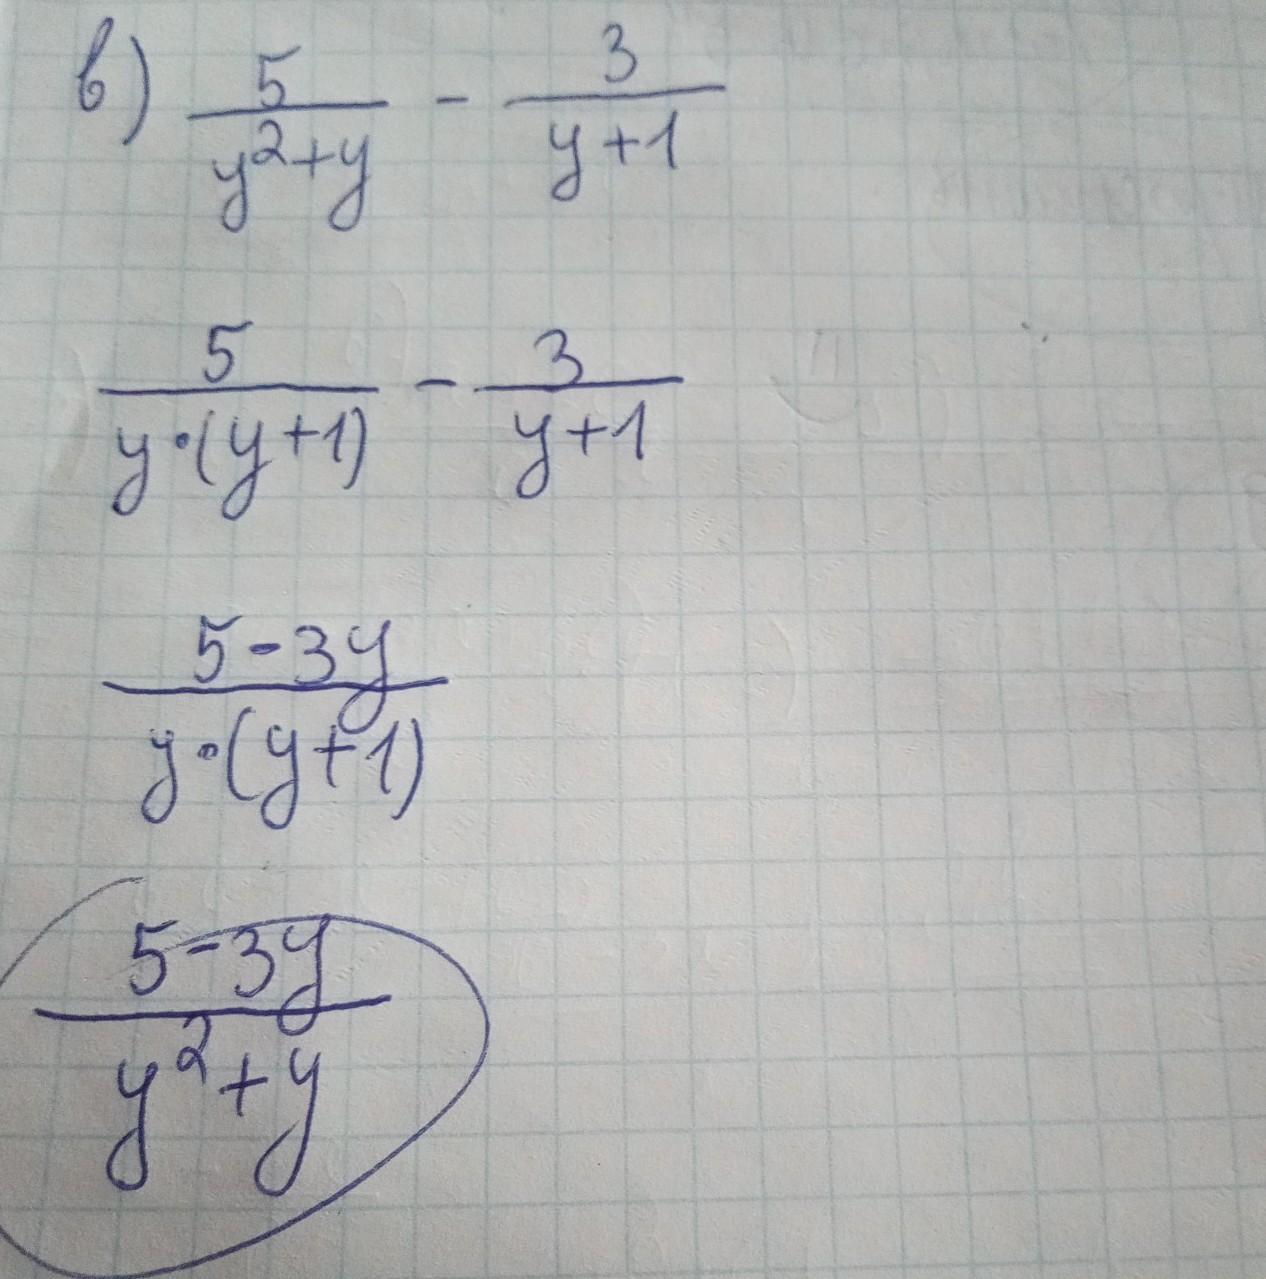 в) 5/(y²+y) - 3/(y+1)
5/(y·(y+1)) - 3/(y+1)
(5-3y)/(y·(y+1))
(5-3y)/(y²+y)